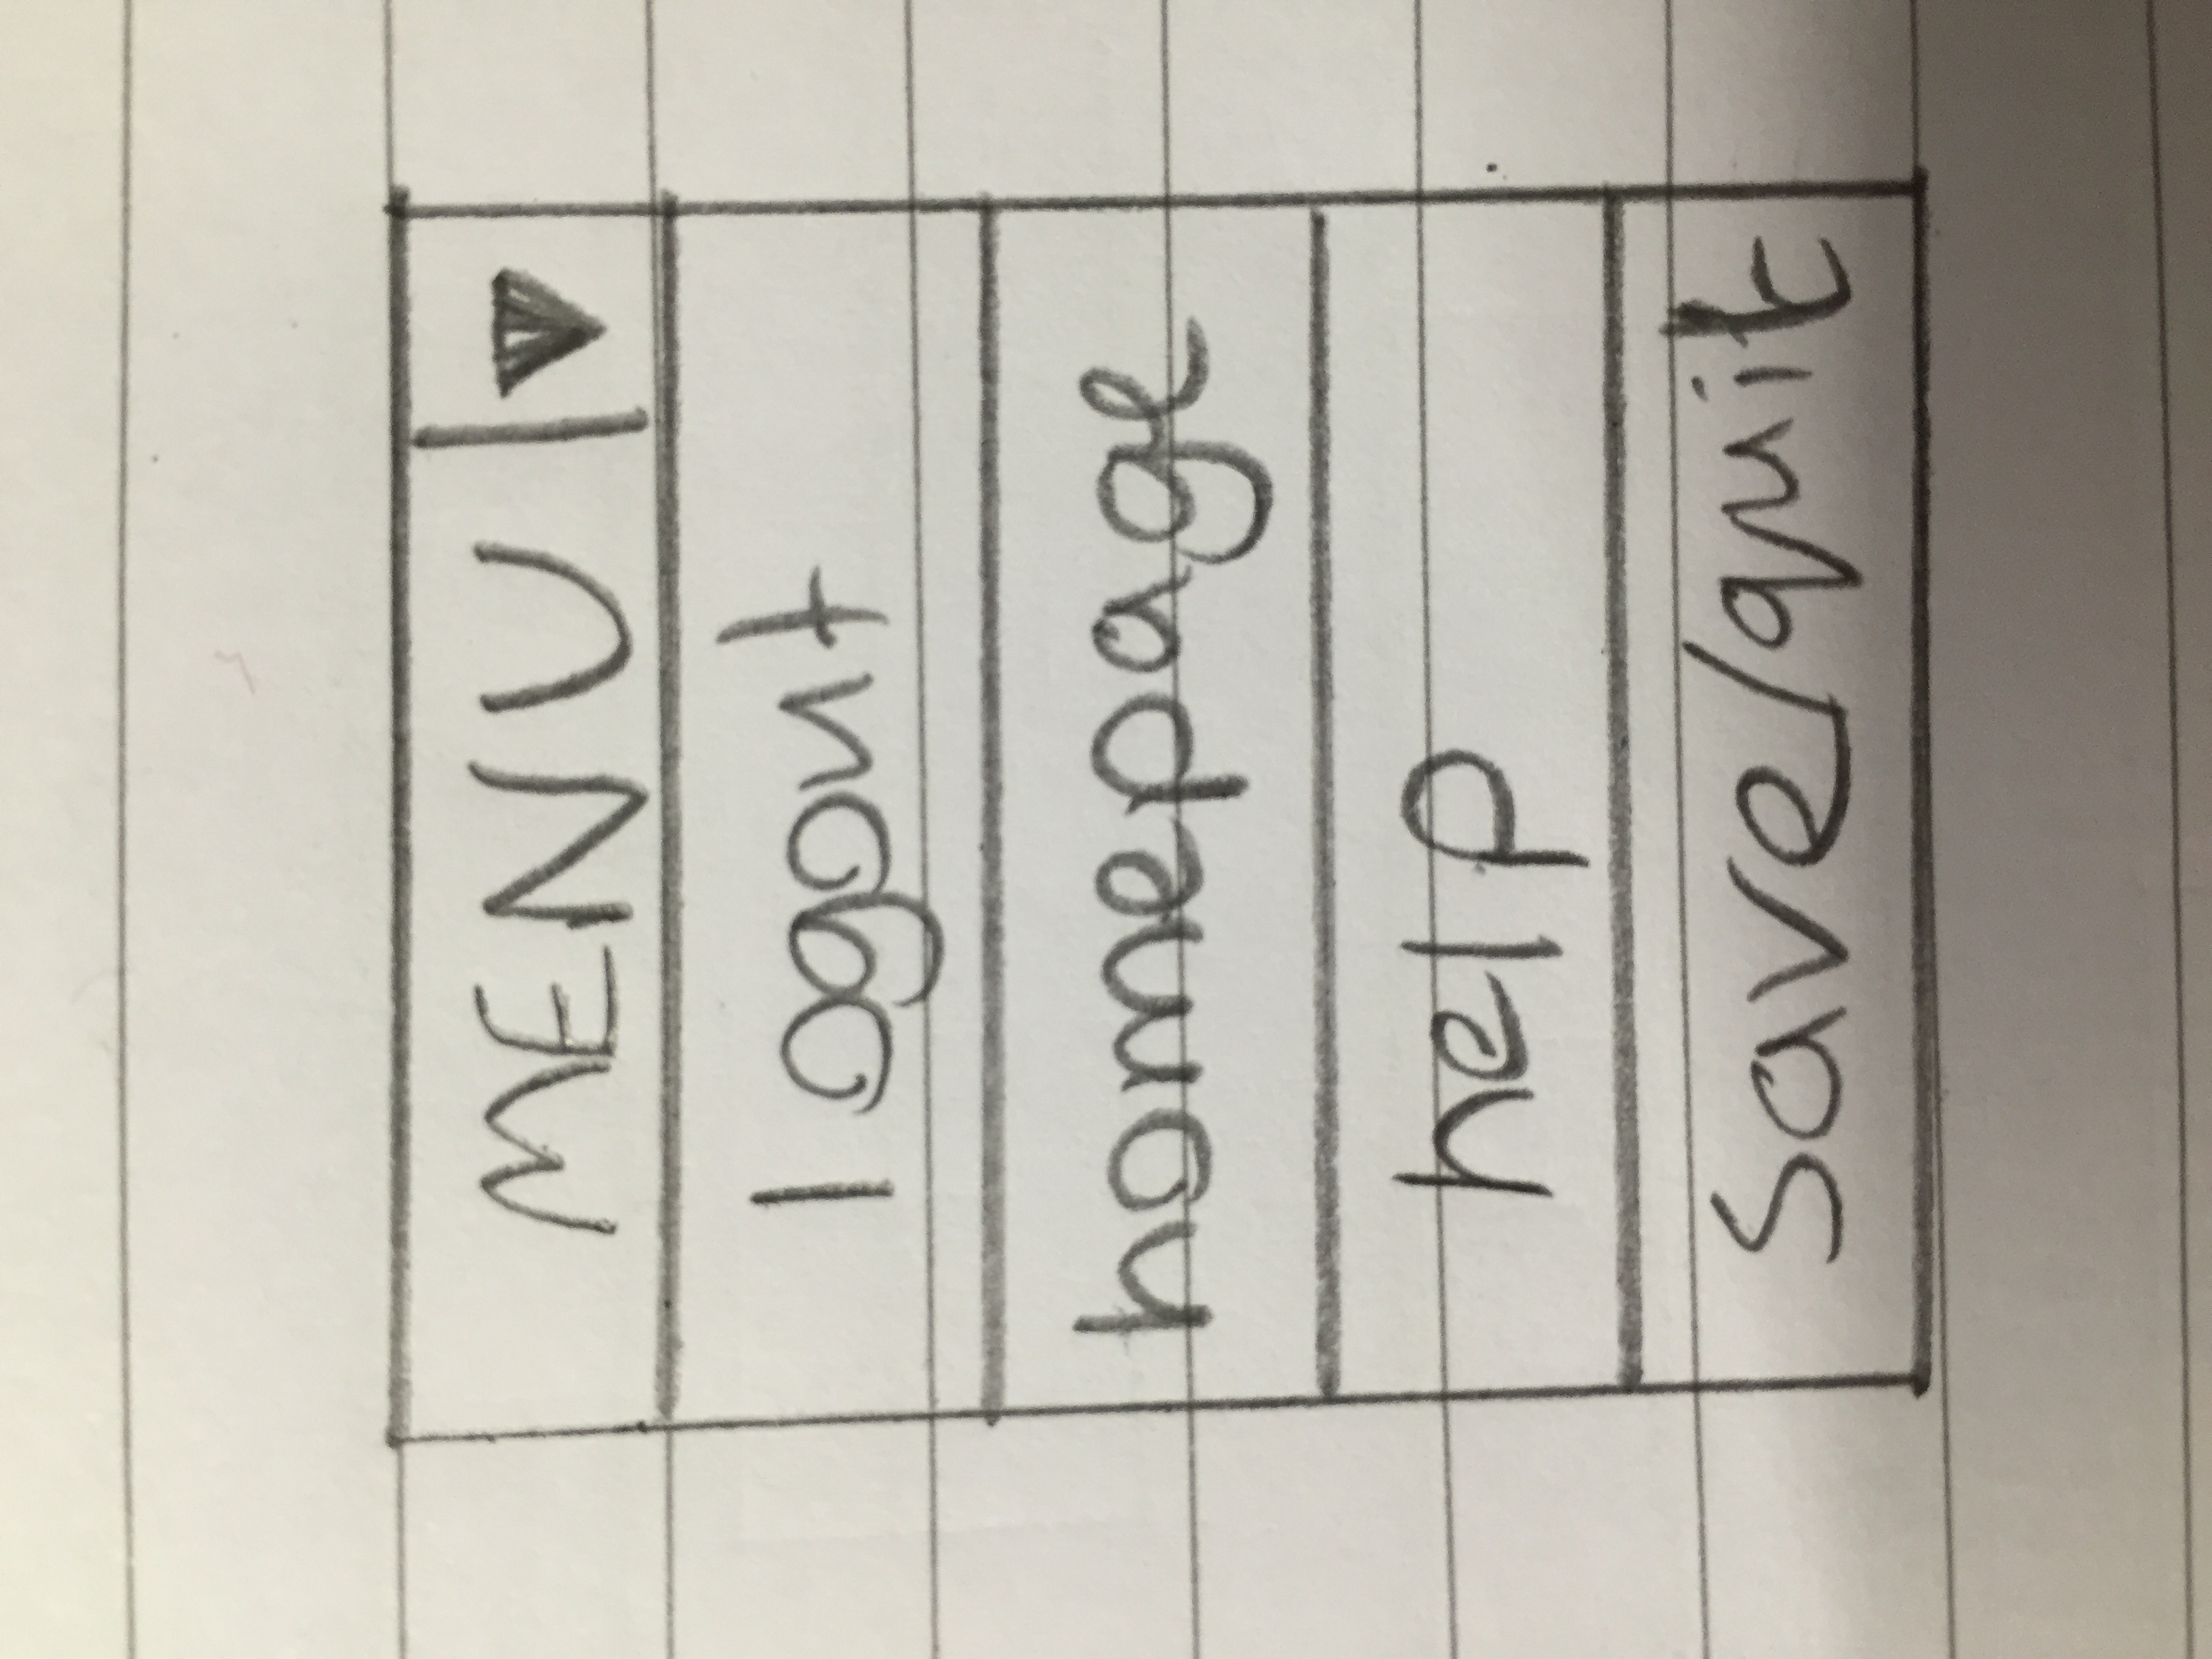 MENU
logout
homepage
help
save/quit